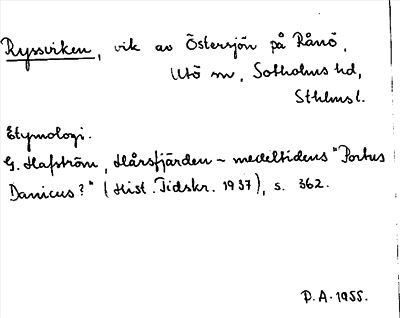 Ryssviken, vik av Östersjön på Rånö,
Utö sn, Sotholms hd,
Sthlms l.
Etymologi.
G. Hafström, Hårsfjärden – medeltidens "Portus
Danicus?" (Hist. Tidskr. 1937), s. 362.
D.A. 1955.